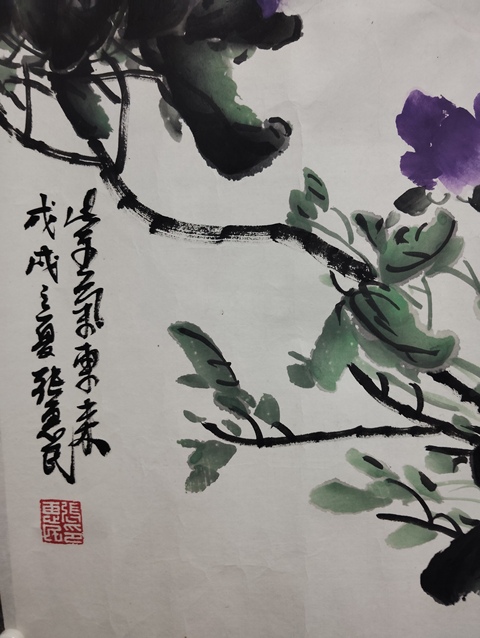 紫氣東来
戊戌之夏张惠民
張印
惠民